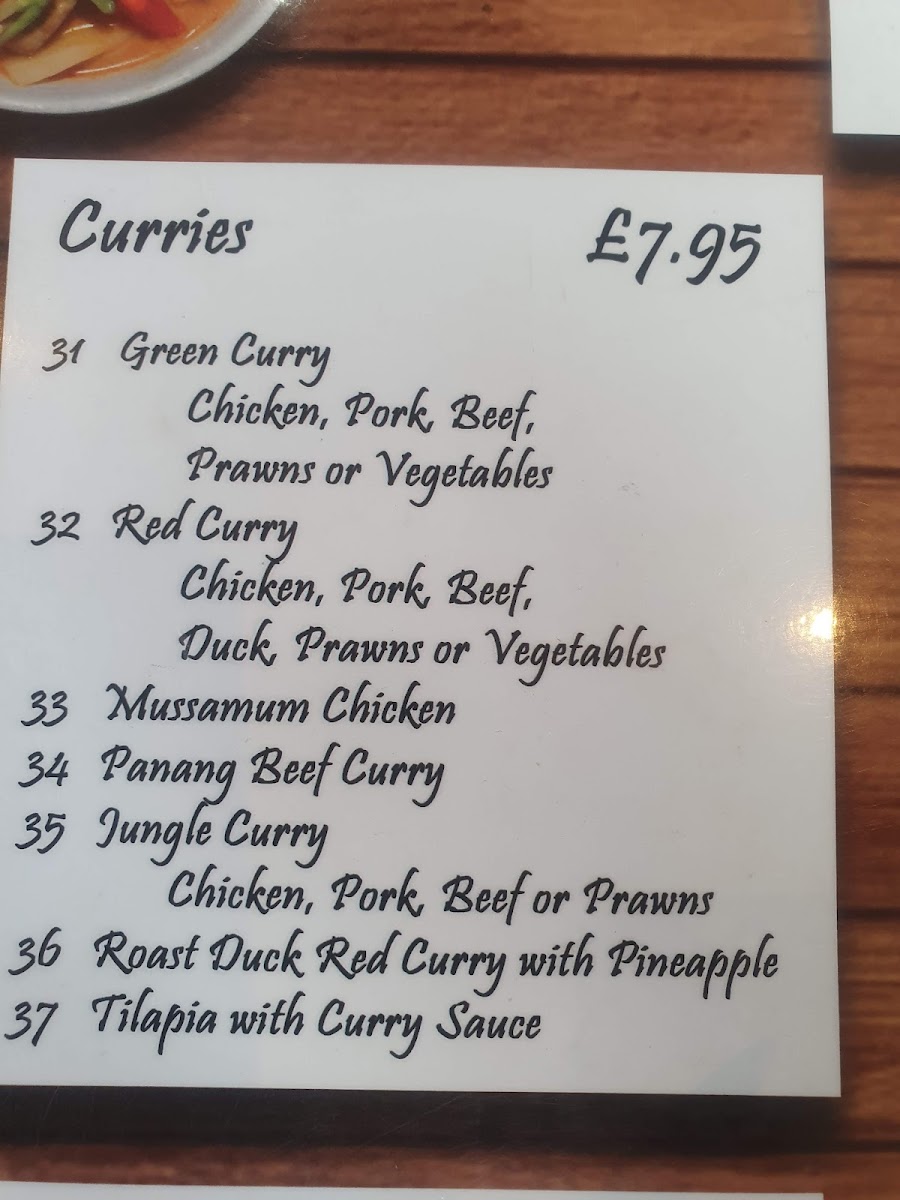 Curries £7.95
31 Green Curry
Chicken, Pork, Beef,
Prawns or Vegetables
32 Red Curry
Chicken, Pork, Beef,
Duck, Prawns or Vegetables
33 Mussamum Chicken
34 Panang Beef Curry
35 Jungle Curry
Chicken, Pork, Beef or Prawns
36 Roast Duck Red Curry with Pineapple
37 Tilapia with Curry Sauce